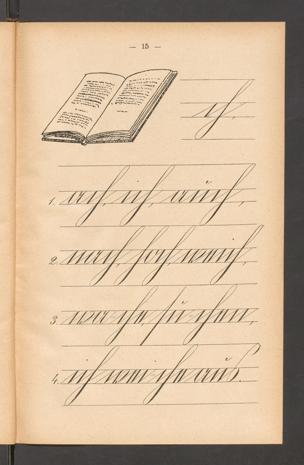 — 15 —
ch.
1. ach, ich, auch,
2. nach, hoch, weich,
3. wa che, su chen,
4. ich wei che aus.